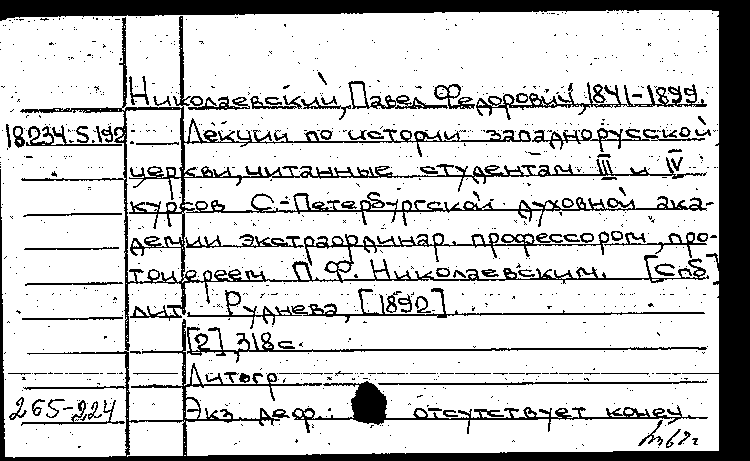 Николаевский, Павел Федорович, 1841-1899.
18.234.5.192. Лекции по истории западнорусской
церкви, читанные студентам III и IV
курсов С.-Петербургской духовной ака-
демии экстраординар. профессором, про-
тоиереем П.Ф. Николаевским. [Спб]
лит. Руднева, [1892].
[2], 318 с.
Литогр.
265-224 Экз. деф.: отсутствует конец.